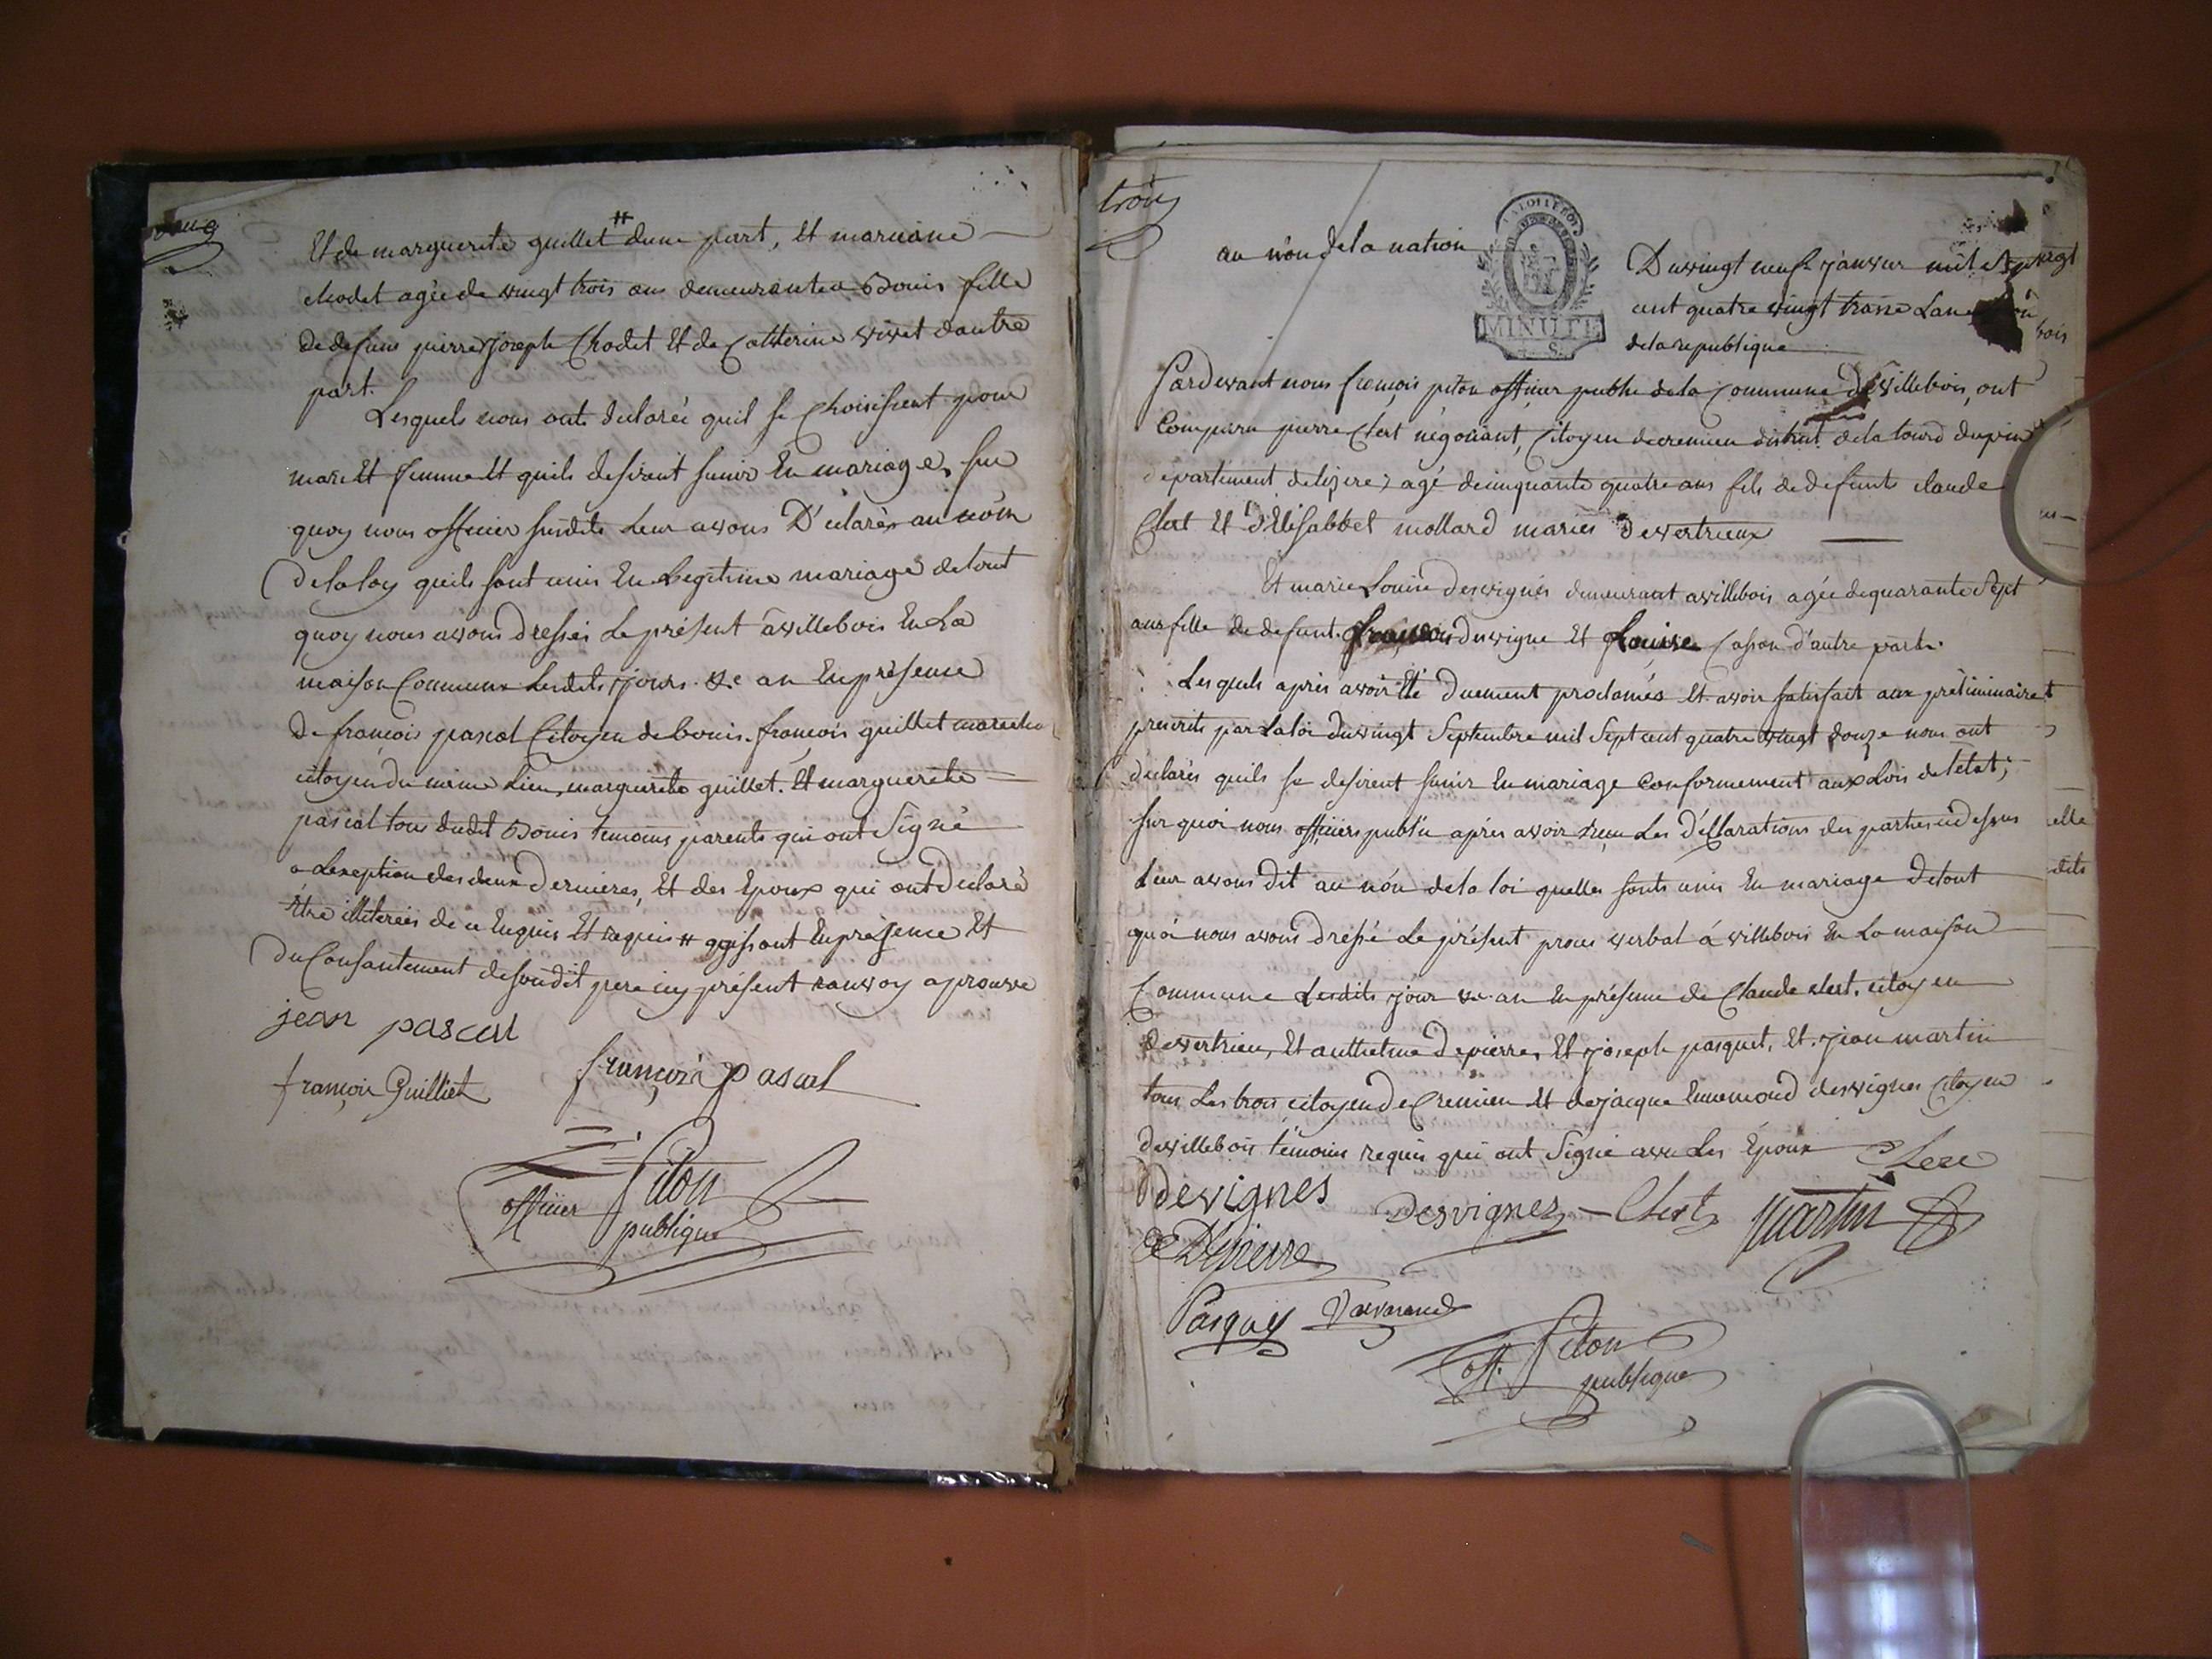 Et de marguerite guillet # dune part, Et mariane
chodet agée de vingt trois ans demeurante a Bouis fille
de defunt pierre joseph Chodet Et de Catherine vivet dautre
part.
Lesquels nous onts declarée quil se choisissent pour
mari Et femme Et quils desirent sunir En mariage, sur
quoy nous officier susdits Leur avons D'eclarés au nom
de la loy quils sont unis En Legitime mariage de tout
quoy nous avons dressés Le présent à villebois En La
maison Commune Lesdits jours &e an En présence
De françois pascal Citoyen de bouis. françois guillet
citoyen du même Lieu, marguerite guillet. Et marguerite
pascal tous dudit Bouis temoins parents qui ont Signé
a Lexeption des deux Dernieres, Et des Epoux qui ont Declaré
Etre illiterées de ce Enquis Et requis # agissant En présence Et
Du Consantement de sondit pere icy présent ranvoy aprouvé
jean pascal
françois Guilliet
françois pascal
officier Piton
publique
trois
au nom de la nation
MINUTE
Du vingt neuf janvier mil Sept
cent quatre vingt traize Lan
de la republique
Pardevant nous françois piton officier public de la Commune de villebois, ont
Comparu pierre Clert négotiant, Citoyen de cremieu district de la tour dupin
departement de lizere, agé de cinquante quatre ans fils de defunts claude
Clert Et d'Elisabbet mollard mariés de vertrieux
Et marie Louise desvignes demeurant a villebois agée de quarante Sept
ans fille de defunt françois duvigne Et Louise Casson d'autre part.
Lesquels après avoir Eté duement proclamés Et avoir satisfait aux préliminaires
prescrits par La loi du vingt Septembre mil Sept cent quatre vingt douze nous ont
declarés quils se desirent sunir En mariage Conformement aux Lois de letat;
sur quoi nous officiers public après avoir reçu Les D'éclarations des parties cidessus
Leur avons dit au nom de la loi quelles sonts unis En mariage De tout
quoi nous avons dressé Le présent proces verbal á villebois En La maison
Commune Lesdits jour &e an En présence de Claude clert. citoyen
de vertrieu, Et Depierre, Et joseph pasquet, Et jean martin
tous Les trois citoyen de Cremieu Et de jacque Ennemond desvignes Citoyen
de villebois témoins requis qui ont Signé avec Les Époux Clere
Devignes
Desvignes Clert Martin
Depierre
Pasquet
off. Piton
publique